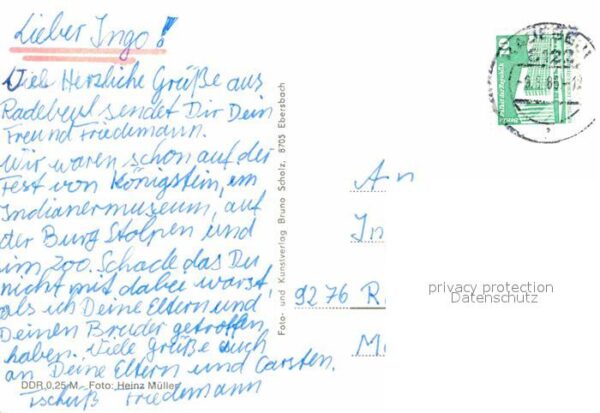 Lieber Ingo!
Viele Herzliche Grüße aus
Radebeul sendet Dir Dein
Freund Friedemann.
Wir waren schon auf der
Fest von Königstein, im
Indianermuseum, auf
der Burg Stolpen und
im Zoo. Schade das Du
nicht mit dabei warst,
als ich Deine Eltern und
Deinen Bruder getroffen
haben. Viele Grüße auch
an Deine Eltern und Carsten.
Tschüß Friedemann
DDR 0,25 M · Foto: Heinz Müller
Foto- und Kunstverlag Bruno Scholz, 8705 Ebersbach
An
In
9276 R
privacy protection
Datenschutz